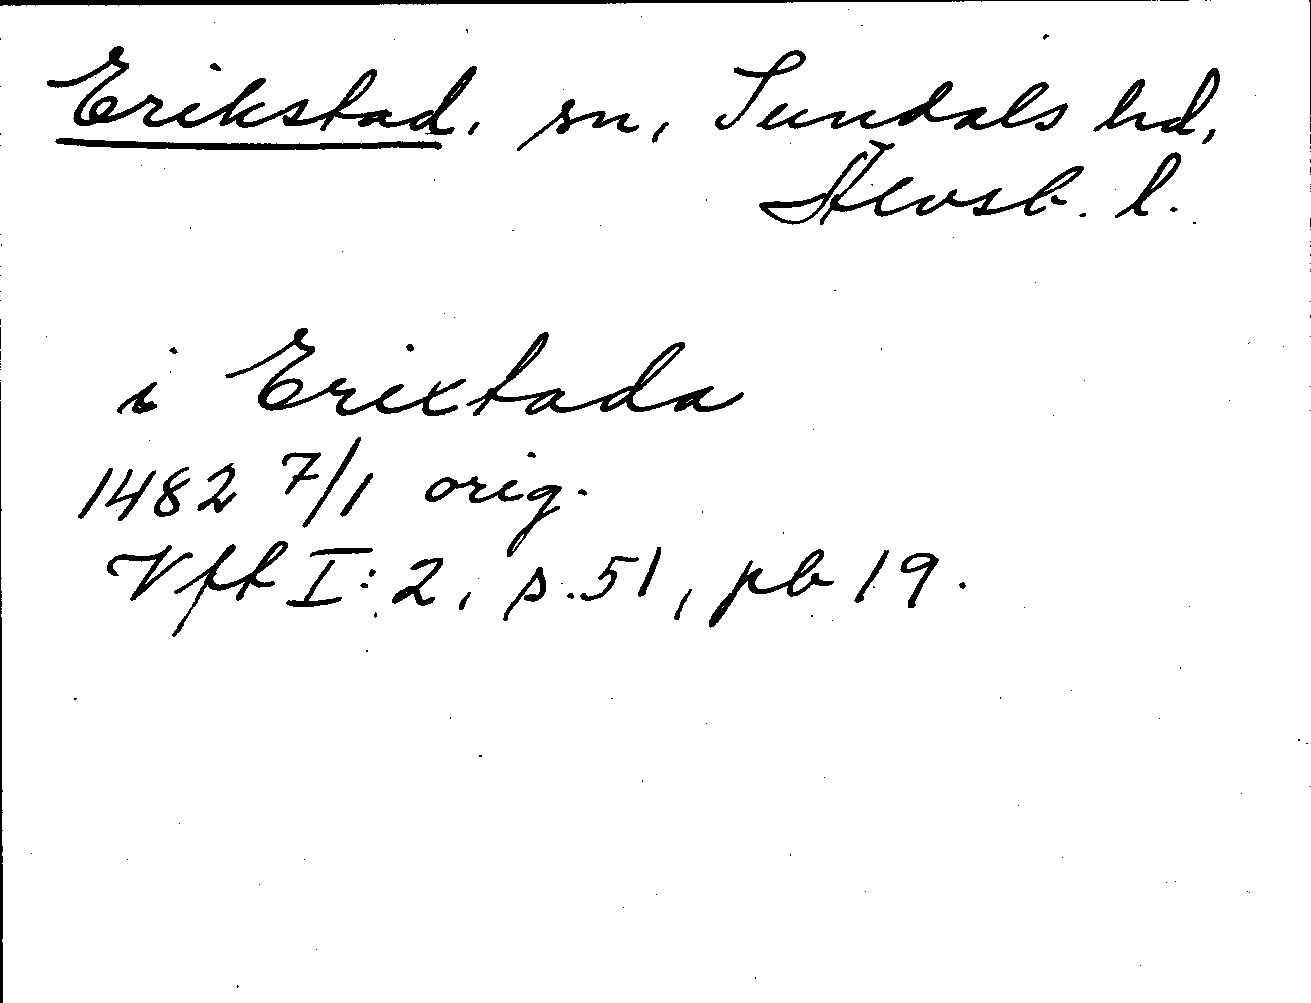 Erikstad, sn, Sundals hd,
Älvsb. l.
i Erixtada
1482 7/1 orig.
Vft I:2, s. 51, pb 19.